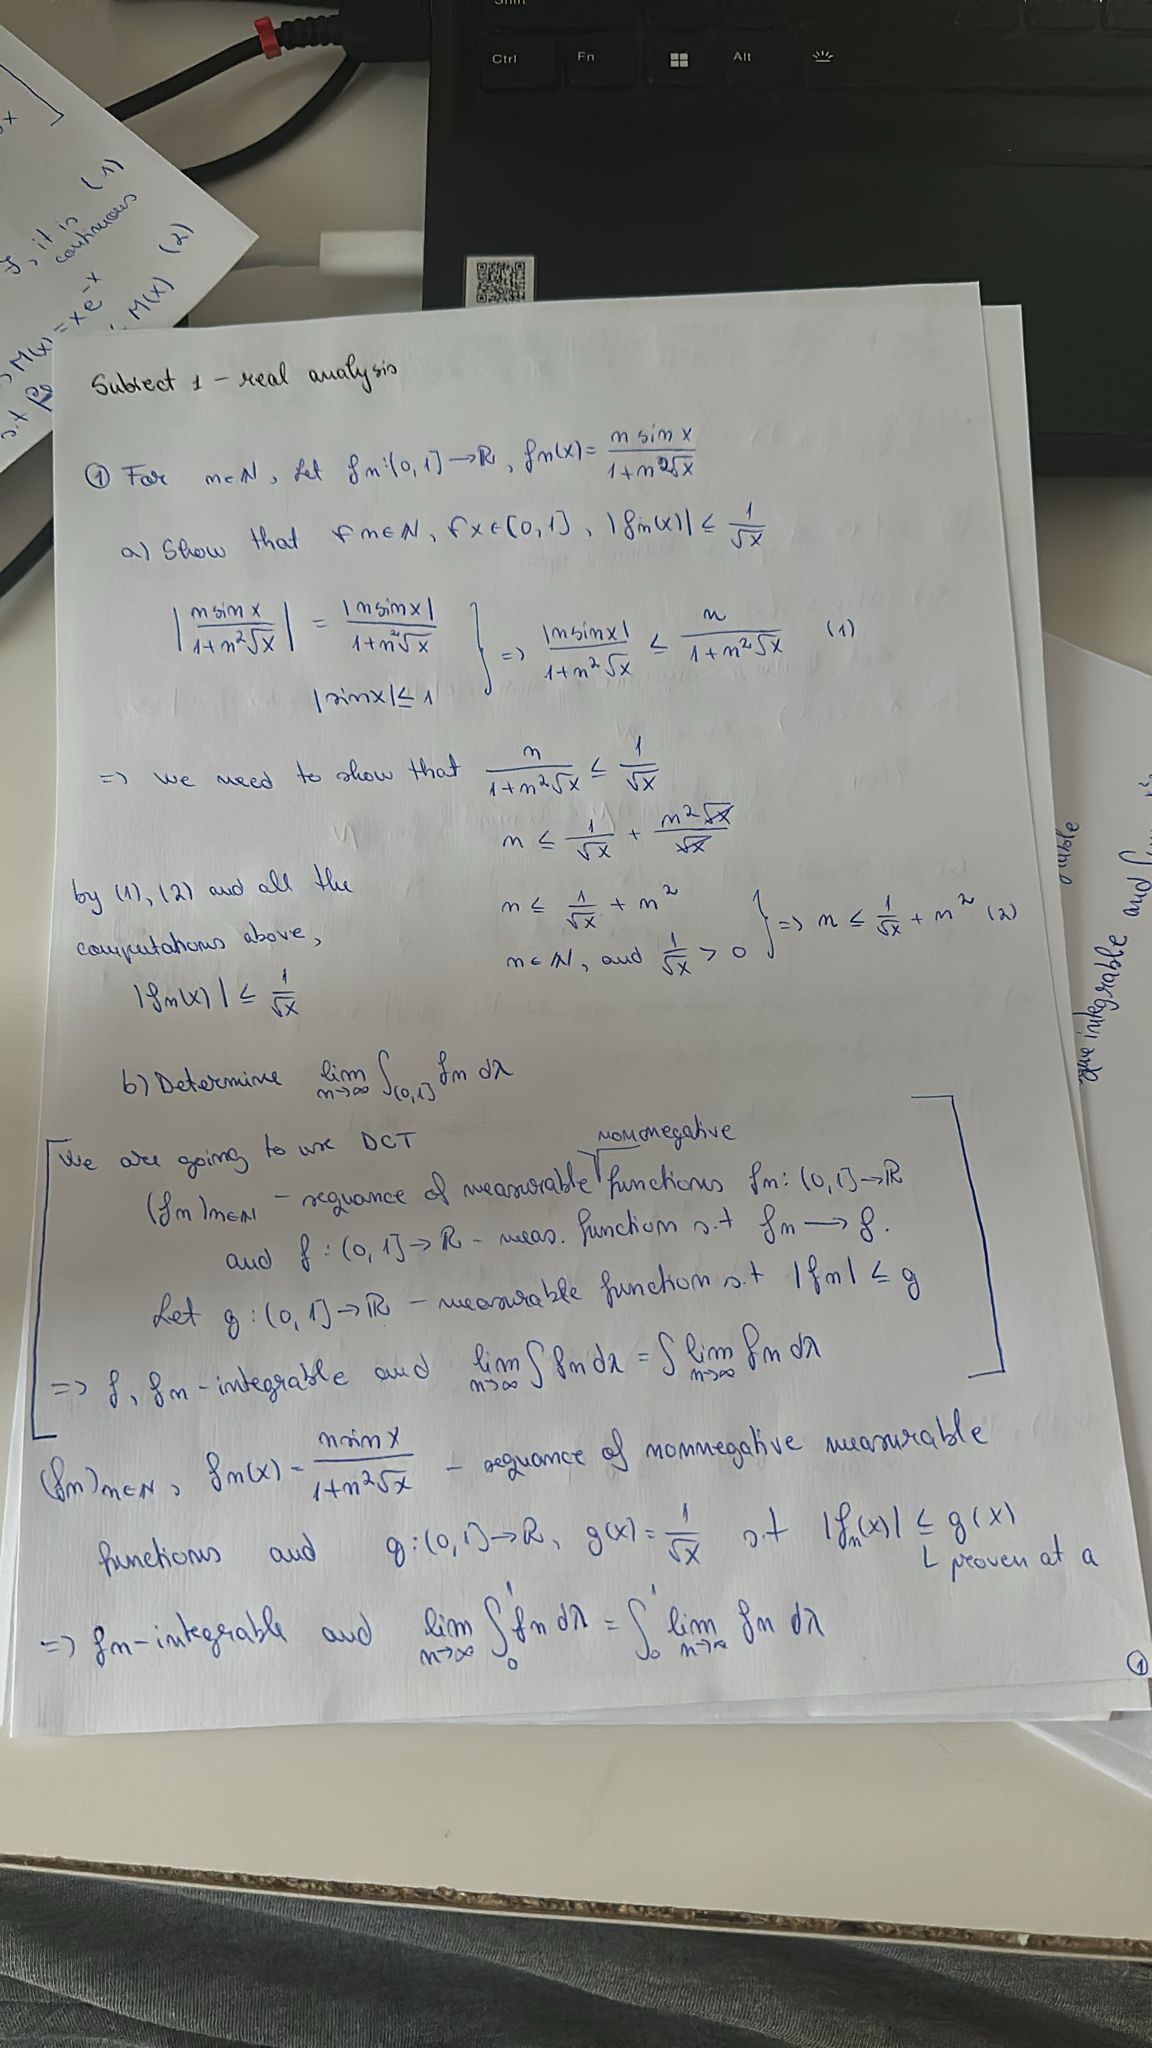 Shift
Ctrl Fn Alt
x
f, it is (1)
continuous
M(x) = xe^-x
M(x) (2)
s.t
Subiect 1 - real analysis
① For n∈N, let fn:(0,1]→R, fn(x)= n sin x / 1+n²√x
a) Show that ∀n∈N, ∀x∈(0,1], |fn(x)| ≤ 1/√x
|n sin x / 1+n²√x| = |n sin x| / 1+n²√x } => |n sin x| / 1+n²√x ≤ n / 1+n²√x (1)
|sin x| ≤ 1
=> we need to show that n / 1+n²√x ≤ 1/√x
n ≤ 1/√x + n²√x/√x
by (1), (2) and all the
computations above,
|fn(x)| ≤ 1/√x
n ≤ 1/√x + n² } => n ≤ 1/√x + n² (2)
n∈N, and 1/√x > 0
b) Determine lim n→∞ ∫(0,1] fn dλ
We are going to use DCT
(fn)n∈N - sequance of measurable nonnegative functions fn: (0,1]→R
and f: (0,1]→R - meas. function s.t fn → f.
Let g: (0,1]→R - measurable function s.t |fn| ≤ g
=> f, fn - integrable and lim n→∞ ∫ fn dλ = ∫ lim n→∞ fn dλ
(fn)n∈N, fn(x) = n sin x / 1+n²√x - sequance of nonnegative measurable
functions and g:(0,1]→R, g(x) = 1/√x s.t |fn(x)| ≤ g(x)
proven at a
=> fn - integrable and lim n→∞ ∫₀¹ fn dλ = ∫₀¹ lim n→∞ fn dλ
①
integrable and